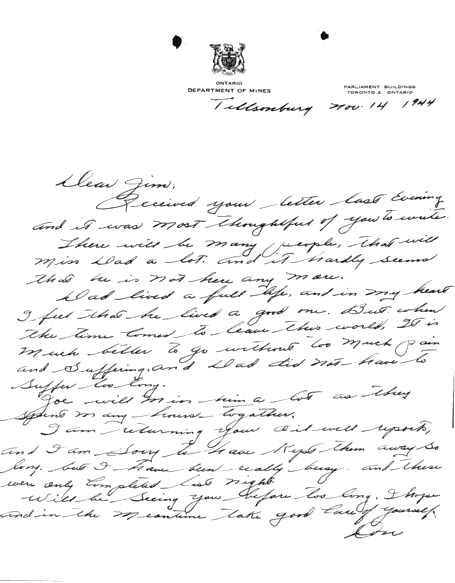 ONTARIO
DEPARTMENT OF MINES
PARLIAMENT BUILDINGS
TORONTO.2 ONTARIO
Tillsonburg Nov. 14 1944
Dear Jim:
Received your letter last Evening
and it was most thoughtful of you to write.
There will be many people, that will
miss Dad a lot. and it hardly seems
that he is not here any more.
Dad lived a full life, and in my heart
I feel that he lived a good one. But when
the time comes to leave this world, It is
much better to go without too much pain
and suffering, and Dad did not have to
suffer too long.
Joe will miss him a lot as they
spent many hours together.
I am returning your oil well reports,
and I am sorry to have kept them away so
long. but I have been really busy. and these
were only completed last night.
Will be seeing you before too long, I hope
and in the meantime take good care of yourself.